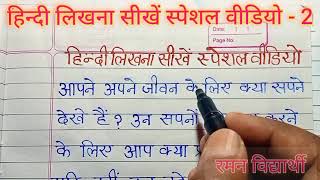 हिन्दी लिखना सीखें स्पेशल वीडियो - 2
Date:
Page No:
हिन्दी लिखना सीखें स्पेशल वीडियो
आपने अपने जीवन के लिए क्या सपने
देखे हैं? उन सपनों करने
के लिए आप क्या
रमन विद्यार्थी